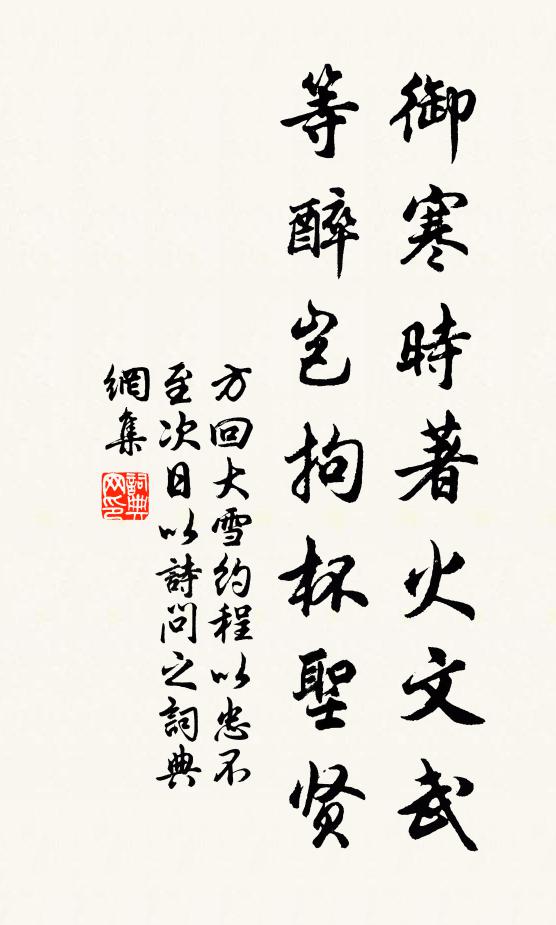 御寒時著火文武
等醉岂拘杯聖贤
方回大雪约程以忠不
至次日以詩问之詞典
網集
詞典
网印